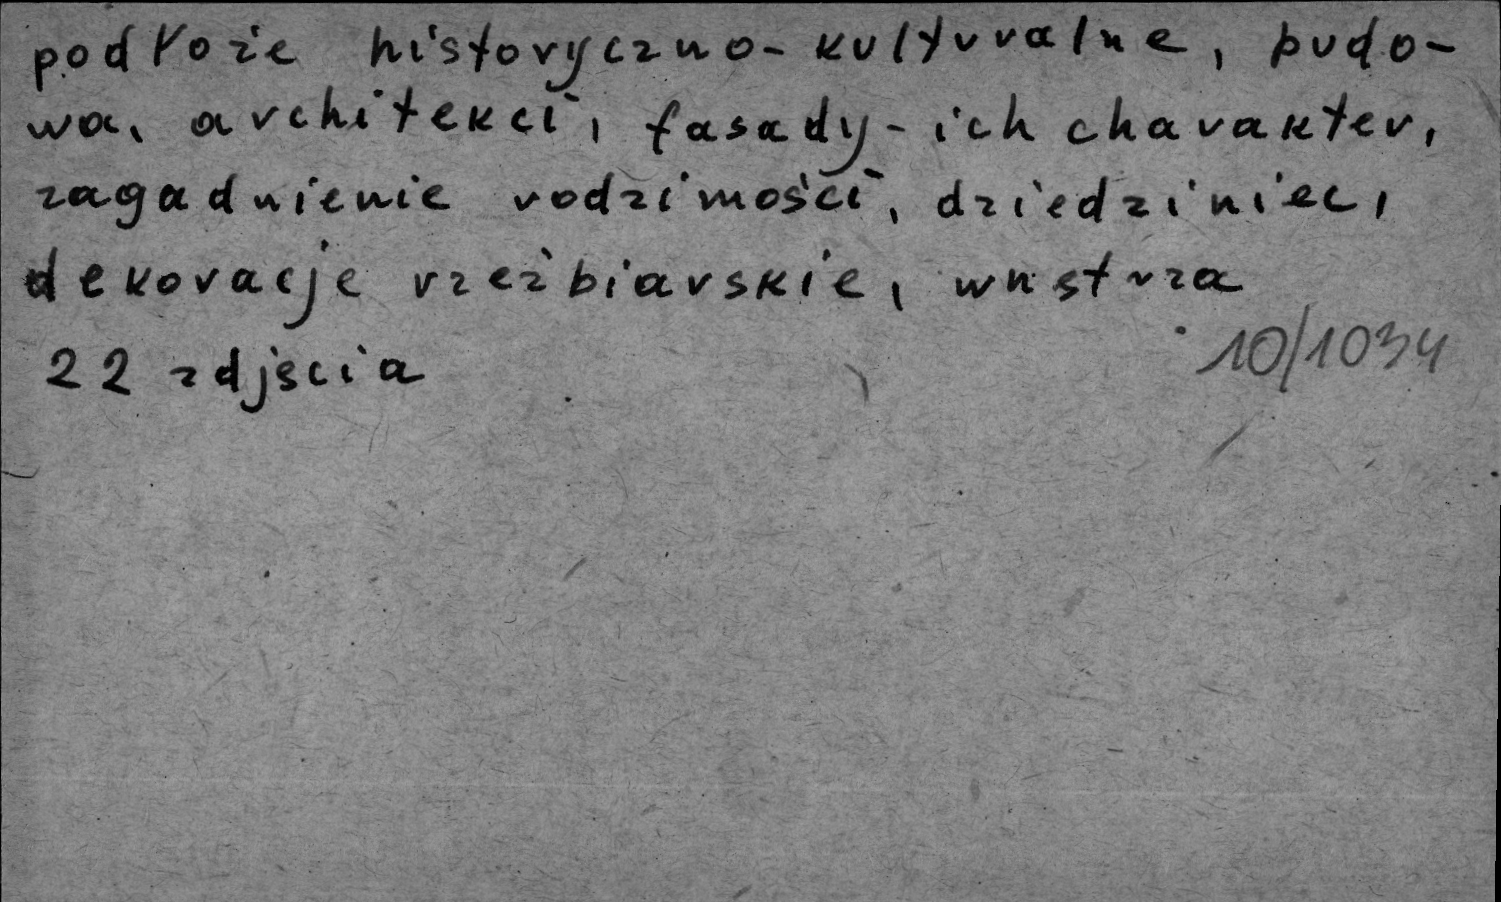 podłoże historyczno-kulturalne, budo-
wa, architekci, fasady - ich charakter,
zagadnienie rodzimości, dziedziniec,
dekoracje rzeźbiarskie, wnętrza
22 zdjęcia
10/1034